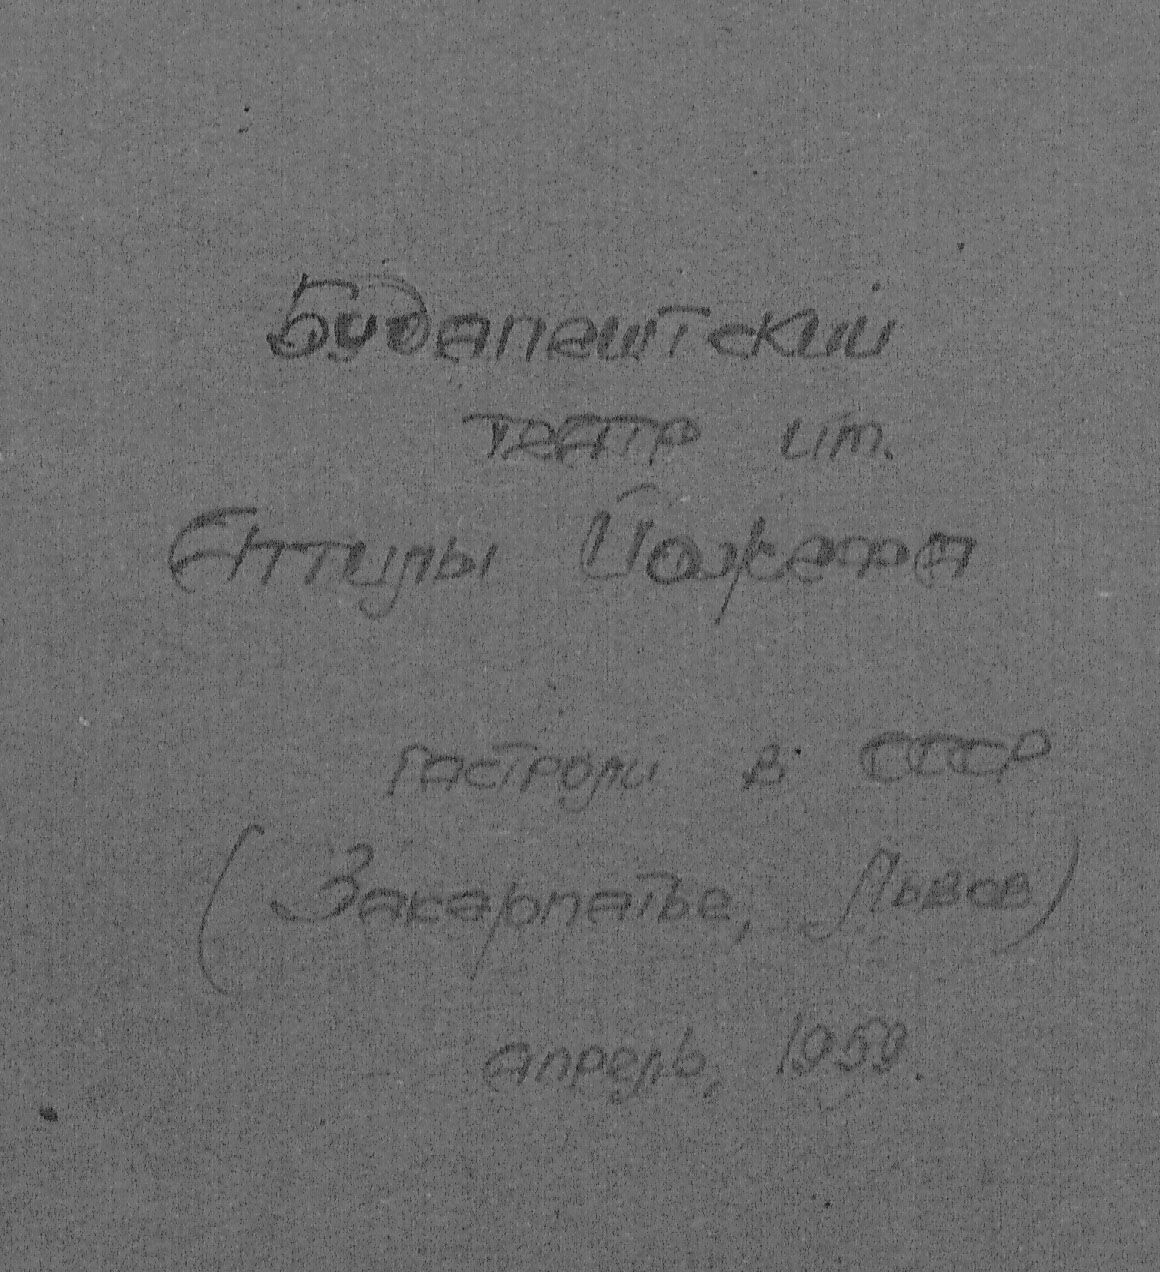 Будапештский
театр им.
Аттилы Йожефа
гастроли в СССР
(Закарпатье, Львов)
апрель, 1959.